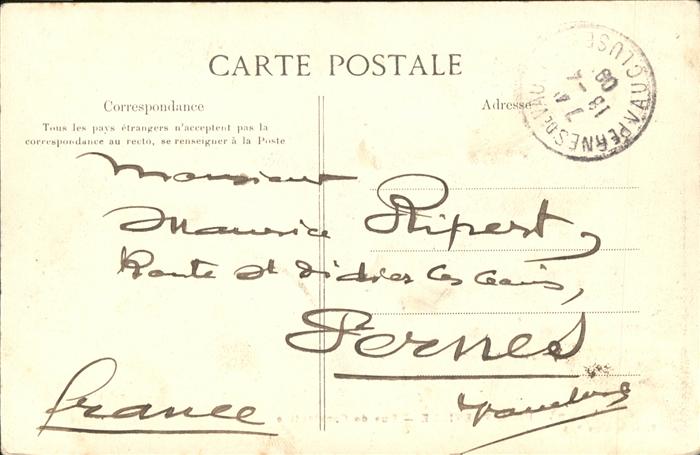 CARTE POSTALE
Correspondance
Adresse
Tous les pays étrangers n'acceptent pas la
correspondance au recto, se renseigner à la Poste
PERNES DE VAUCLUSE VAUCLUSE
18 -4
09
Monsieur
Maurice Ripert,
Route St Didier les Bains,
Pernes
Vaucluse
France